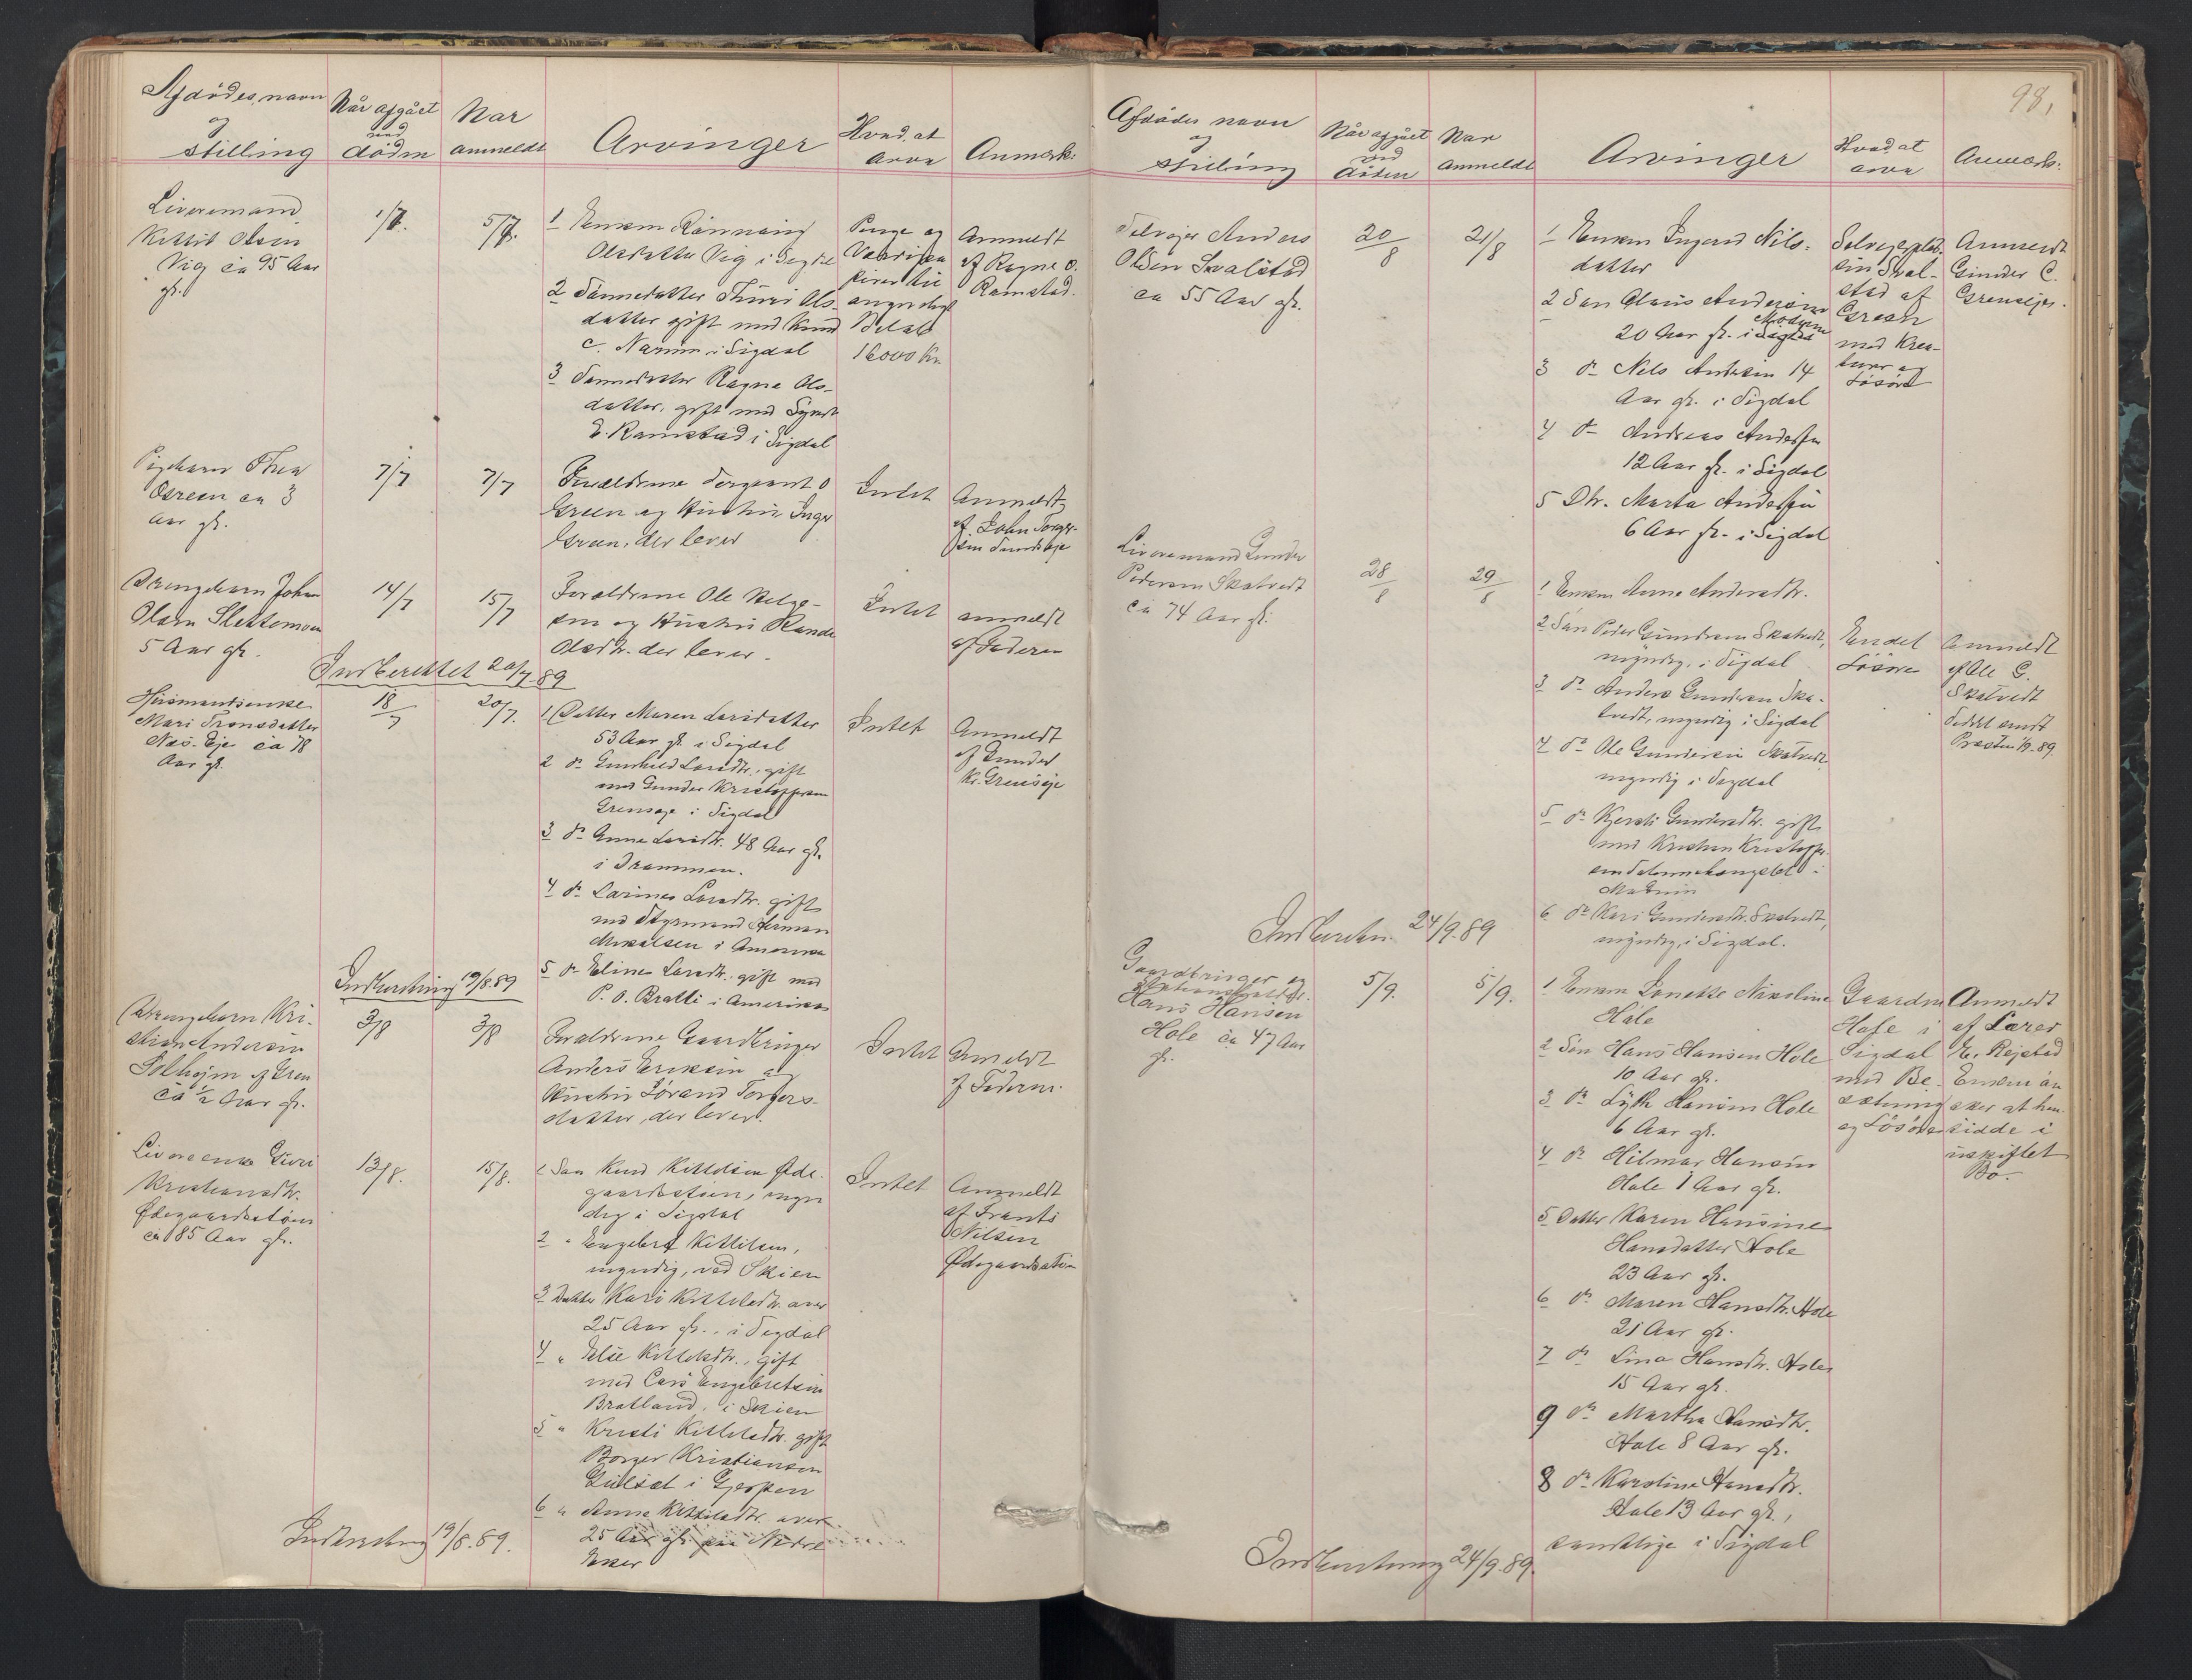 Afdødes navn
og
stilling
Når afgået
ved
døden
Nar
anmeldt
Arvinger
Hvad at
arve
Anmærk:
Liveremand
Kittil Olsen
Vig ca 95 Aar
gl.
1/7.
5/7.
1 Enken Rönnaug
Olsdatter Vig i Sigdal
2 Sønnedatter Thuri Ols-
datter gift med Knud
C. Narum i Sigdal
3 Sønnedatter Ragne Ols-
datter, gift med
E. Ramstad i Sigdal
Penge og
Værdipa
pirer til
angivelig
Beløb
16000 Kr.
Anmeldt
af Ragne O.
Ramstad.
Pigebarn Thea
Green ca 3
Aar gl.
7/7
7/7
Forældrene Torgrim O
Green og Hustru Inger
Green, der lever
Intet
Anmeldt
af John Torger-
sen
Drengebarn Johan
Olsen Slettemoen
5 Aar gl.
14/7
15/7
Forældrene Ole Helge-
sen og Hustru Rande
Olsdtr. der lever.
Intet
anmeldt
af Faderen
Indberettet 20/7-89
Husmandsenke
Mari Tronsdatter
Næs-Eje ca 78
Aar gl.
18/7
20/7.
1 Datter Maren Larsdatter
53 Aar gl. i Sigdal
2 do Gunhild Larsdtr. gift
med Gunder Kristoffersen
Grenseje i Sigdal
3 do Anne Larsdtr. 48 Aar gl.
i Drammen.
4 do Larine Larsdtr. gift
med Styrmand Herman
Mikalsen i Amerika
5 do Eline Larsdtr. gift med
P. O. Bratli i Amerika
Intet
Anmeldt
af Gunder
Kr. Grenseje
Indberetning 19/8.89
Drengebarn Kri-
stian Andersen
Solhøjm af Gren
ca 1/2 Aar gl.
3/8
3/8
Forældrene Gaardbruger
Anders Eriksen og
Hustru Jørand Torgers-
datter, der lever.
Intet
Anmeldt
af Faderen.
Livøreenke Guri
Kristiansdtr.
Ødegaardsstøen
ca 85 Aar gl.
13/8.
15/8.
1 Søn Knud Kittelsen Øde-
gaardsstøen, myn
dig i Sigdal
2 " Engebret Kittilsen,
myndig, ved Skien
3 Datter Kari Kittelsdtr. over
25 Aar gl., i Sigdal
4 " Else Kittelsdtr., gift
med Lars Engebretsen
Bratland, i Skien
5 " Kristi Kittelsdtr. gift
Borger Kristiansen
Gulset i Gjerpen
6 " Anne Kittilsdtr. over
25 Aar gl. paa Nedre
Eker
Intet
Anmeldt
af Frants
Nilsen
Ødegaardsstøen
Indberetning 19/8.89.
98,
Afdødes navn
og
stilling
Når afgået
ved
døden
Nar
anmeldt
Arvinger
Hvad at
arve
Anmærk:
Selvejer Anders
Olsen Svalestad
ca 55 Aar gl.
20/8
21/8
1 Enken Ingerid Nils-
datter
2 Søn Olaus Andersen
20 Aar gl. i Modum
3 do Nils Andersen 14
Aar gl. i Sigdal
4 do Andreas Andersen
12 Aar gl. i Sigdal
5 Dtr. Marta Andersen
6 Aar gl. i Sigdal
Selvejerplad-
sen Sval-
stad af
Green
med Krea-
turer og
Løsøre
Anmeldt
Gunder C.
Grenseje.
Liveremand Gunder
Pedersen Skatvedt
ca 74 Aar gl.
28/8
29/8
1 Enken Anne Andersdtr.
2 Søn Peder Gundersen Skatvedt,
myndig, i Sigdal
3 do Anders Gundersen Ska-
tvedt, myndig i Sigdal
4 do Ole Gundersen Skatvedt
myndig i Sigdal
5 do Kjersti Gundersdtr. gift
med Kristian Kristoffer-
sen i
Modum
6 do Kari Gundersdtr. Skatvedt,
myndig, i Sigdal.
Endel
Løsøre
Anmeldt
af Ole G.
Skatvedt
Seddel sendt
Præsten 1/9-89.
Indberetn. 24/9.89
Gaardbruger og
Hans Hansen
Hole ca 47 Aar
gl.
5/9.
5/9.
1 Enken Lonette Nikoline
Hole
2 Søn Hans Hansen Hole
10 Aar gl.
3 do Lyth Hansen Hole
6 Aar gl.
4 do Hilmar Hansen
Hole 1 Aar gl.
5 Datter Karen Hansine
Hansdatter Hole
23 Aar gl.
6 do Maren Hansdtr. Hole
21 Aar gl.
7 do Lina Hansdtr. Hole
15 Aar gl.
9 do Martha Hansdtr.
Hole 8 Aar gl.
8 do Karoline Hansdtr.
Hole 13 Aar gl.,
samtlige i Sigdal
Gaarden
Hole i
Sigdal
med Be-
sætning
og Løsøre
Anmeldt
af Lærer
E. Rejstad
Enken øn
sker at hen
sidde i
uskiftet
Bo.
Indberetning 24/9.89.